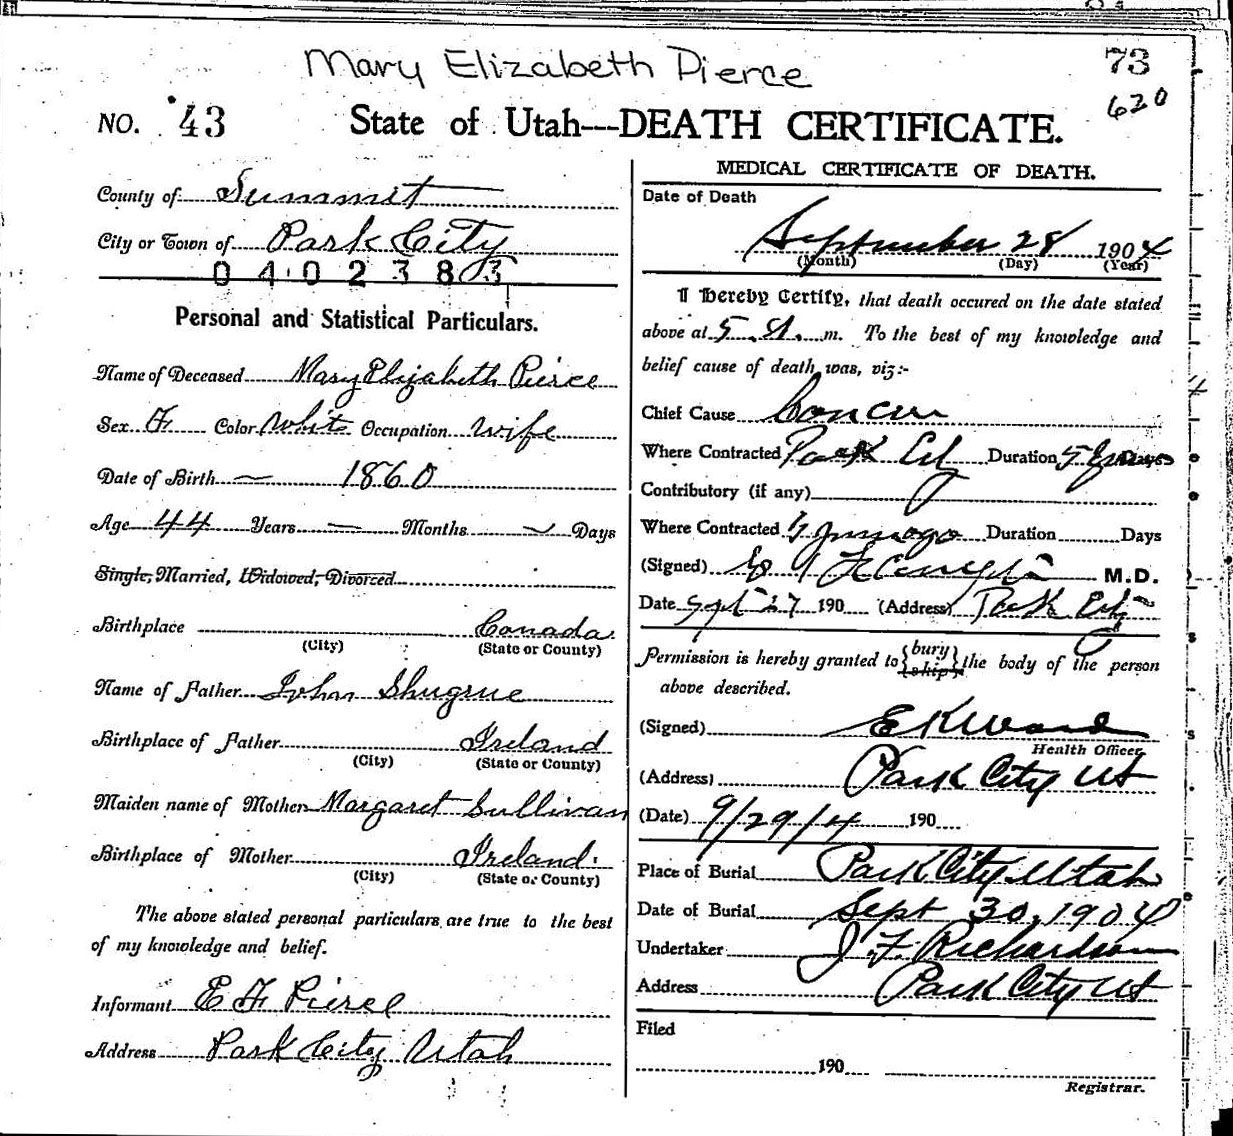 Mary Elizabeth Pierce
73
620
NO. 43 State of Utah---DEATH CERTIFICATE.
County of Summit
City or Town of Park City
0402383
Personal and Statistical Particulars.
Name of Deceased Mary Elizabeth Pierce
Sex F Color White Occupation Wife
Date of Birth — 1860
Age 44 Years — Months — Days
Single, Married, Widowed, Divorced
Birthplace Canada
(City) (State or County)
Name of Father John Shugrue
Birthplace of Father Ireland
(City) (State or County)
Maiden name of Mother Margaret Sullivan
Birthplace of Mother Ireland.
(City) (State or County)
The above stated personal particulars are true to the best
of my knowledge and belief.
Informant E F Pierce
Address Park City Utah
MEDICAL CERTIFICATE OF DEATH.
Date of Death
September 28 1904
(Month) (Day) (Year)
I Hereby Certify, that death occured on the date stated
above at 5 A. m. To the best of my knowledge and
belief cause of death was, viz:-
Chief Cause Cancer
Where Contracted Park City Duration 5 years Days
Contributory (if any)
Where Contracted Duration Days
(Signed) M.D.
Date Sept 27 190 (Address) Park City
Permission is hereby granted to {bury ship} the body of the person
above described.
(Signed) E K Ward
Health Officer
(Address) Park City Ut
(Date) 9/29/4 190
Place of Burial Park City Utah
Date of Burial Sept 30, 1904
Undertaker J. F. Richardson
Address Park City Ut
Filed
190
Registrar.